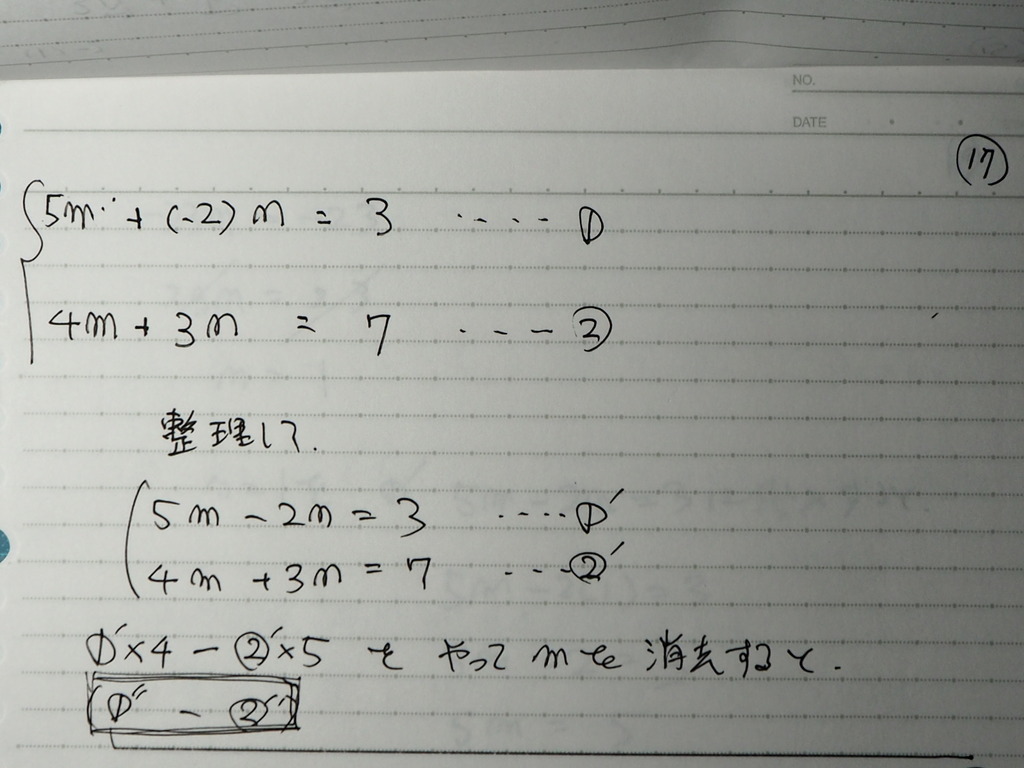 NO.
DATE
⑰
5m + (-2) n = 3 ‥‥ ①
4m + 3n = 7 ‥‥ ②
整理して.
5m - 2n = 3 ‥‥ ①'
4m + 3n = 7 ‥‥ ②'
①'×4 - ②'×5 を やって mを 消去すると.
①'' - ②''